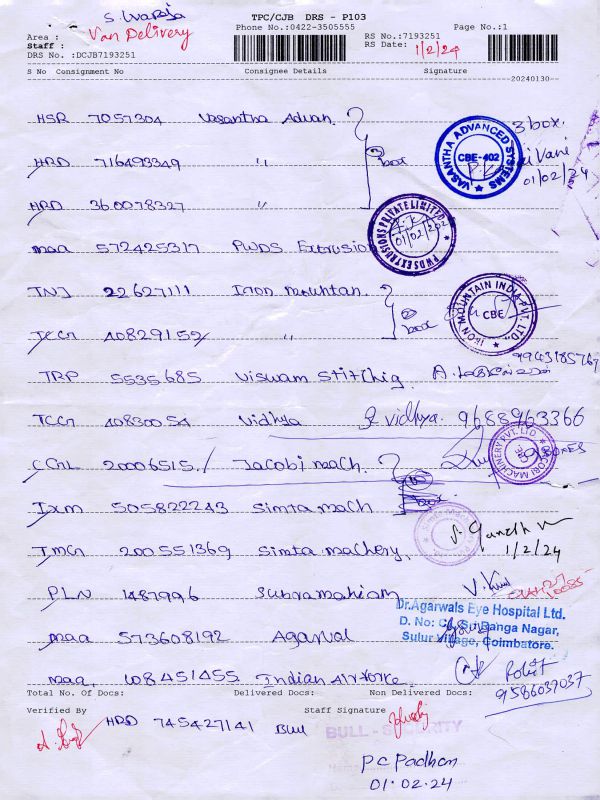 S. Waraja
TPC/CJB DRS - P103
Van Delivery
Phone No.:0422-3505555
Page No.:1
Area :
Staff :
RS No.:7193251
RS Date: 1/2/24
DRS No. :DCJB7193251
S No Consignment No Consignee Details Signature
20240130
HSR 7057304 Vasantha Advan. 3 box.
VASANTHA ADVANCED SYSTEMS CBE-402
HRD 716493349 〃 box Vani
01/02/24
HRD 360078327 〃
PWDS EXTRUSIONS PRIVATE LIMITED 01/02/202
maa 572425317 PWDS Extrusion
TNJ 22627111 Iron mountan.
IRON MOUNTAIN INDIA PVT. LTD., CBE
TCCN 40829152 〃 box
9943185767
TRP 5535685 Viswam Stitchig.
TCCN 40830054 Vidhya Vidhya. 9688963366
CCNL 20006515 / Jacobi mach. BOXES
JACOBI MACHINERY PVT. LTD
IXM 505822243 Simta mach box
TMCN 200551369 Simta machery. 1/2/24
PLN 1487996 Subramaniam V.
maa 573608192 Agarwal
Dr.Agarwals Eye Hospital Ltd.
Ranga Nagar,
Sulur Village, Coimbatore.
maa. 108451455 Indian Airforce Rohit
9586037037
Total No. Of Docs: Delivered Docs: Non Delivered Docs:
Verified By Staff Signature
HRD 745427141 Bull
BULL - SECURITY
PC Padhan
01.02.24